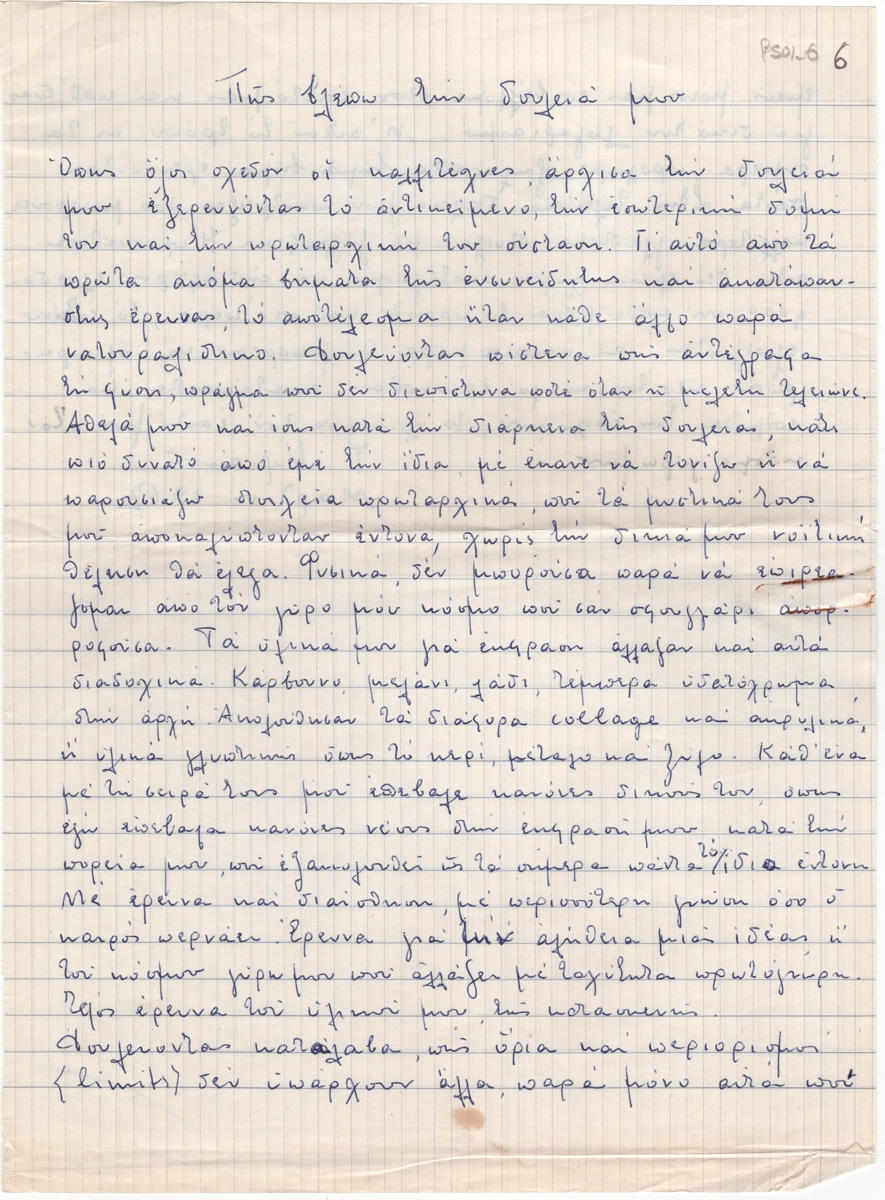 PS01_6 6
Πῶς βλέπω τὴν δουλειά μου
Ὅπως ὅλοι σχεδόν οἱ καλλιτέχνες, ἄρχισα τὴν δουλειά
μου ἐξερευνόντας τὸ ἀντικείμενο, τὴν ἐσωτερικὴ δομή
του καὶ τὴν πρωταρχική του σύσταση. Γι αὐτό ἀπὸ τὰ
πρῶτα ἀκόμα βήματα τῆς ἐνσυνείδητης καὶ ἀκατάπαυ-
στης ἔρευνας, τὸ ἀποτέλεσμα ἦταν κάθε ἄλλο παρά
νατουραλιστικο. Δουλεύοντας πίστευα πῶς ἀντέγραφα
τὴ φύση, πράγμα ποὺ δεν διεπίστωνα ποτέ ὅταν ἡ μελέτη τελείωνε.
Ἀθελά μου καὶ ἴσως κατά τὴν διάρκεια τῆς δουλειᾶς, κάτι
πιό δυνατό ἀπό ἐμέ τὴν ἴδια, μέ ἐκανε νά τονίζω ἤ νά
παρουσιάζω στοιχεία πρωταρχικά, ποὺ τά μυστικά τους
μοῦ ἀποκαλύπτονταν ἔντονα, χωρίς τὴν δικιά μου νοϊτική
θέληση θά ἔλεγα. Φυσικά, δέν μποροῦσα παρά νά ἐπιρεά-
ζομαι ἀπό τόν γύρο μου κόσμο ποὺ σάν σφουγγάρι ἀπορ-
ροφοῦσα. Τά ὑλικά μου γιά ἔκφραση ἄλλαξαν καὶ αὐτά
διαδοχικά. Κάρβουνο, μελάνι, λάδι, τέμπερα ὑδατόχρωμα
στὴν ἀρχή. Ἀκολούθησαν τά διάφορα collage καὶ ἀκρυλικά,
ἤ ὑλικά γλυπτικῆς ὅπως τό κερί, μέταλο καὶ ξύλο. Κάθ' ἕνα
μέ τὴ σειρά τους μοῦ ἐπέβαλε κανόνες δικούς του, ὅπως
ἐγώ ἐπέβαλα κανόνες νέους στὴν ἔκφρασή μου, κατά τὴν
πορεία μου, ποὺ ἐξακολουθεῖ ὡς τά σήμερα πάντα τό ἴδιο ἔντονη
Μέ ἔρευνα καὶ διαίσθηση, μέ περισσότερη γνώση ὅσο ὁ
καιρός περνάει. Ἔρευνα γιά τὴν ἀλήθεια μιᾶς ἰδέας ἤ
τοῦ κόσμου γύρω μου ποὺ ἀλλάζει μέ ταχύτητα πρωτόγνωρη.
Τέλος ἔρευνα τοῦ ὑλικοῦ μου, τῆς κατασκευῆς.
Δουλεύοντας κατάλαβα, πῶς ὅρια καὶ περιορισμοί
(limits) δεν ὑπάρχουν ἄλλα, παρά μόνο αὐτά ποὺ